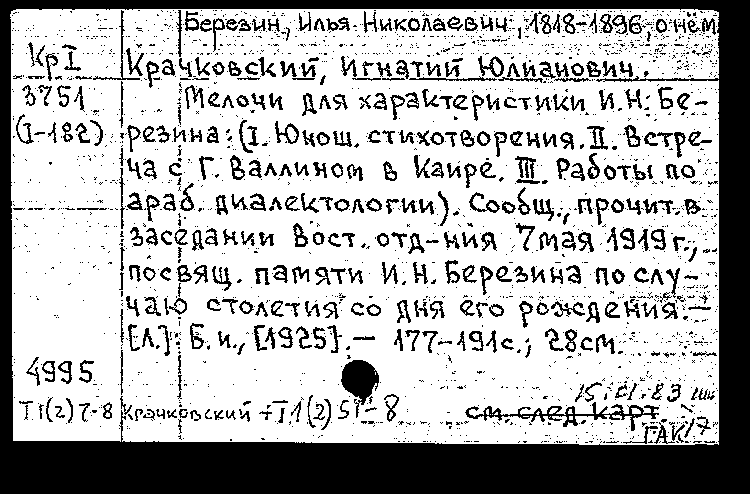 Березин, Илья Николаевич, 1818-1896, о нём
Кр I Крачковский, Игнатий Юлианович.
3751 Мелочи для характеристики И.Н. Бе-
(I-182) резина: (I. Юнош. стихотворения. II. Встре-
ча с Г. Валлином в Каире. III. Работы по
араб. диалектологии). Сообщ., прочит. в
заседании Вост. отд-ния 7 мая 1919 г.,
посвящ. памяти И.Н. Березина по слу-
чаю столетия со дня его рождения.—
[Л.]: Б. и., [1925].— 177-191с.; 28см.
4995
Крачковский
см. след. карт
ГАК/7